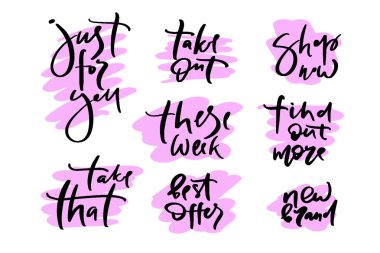 just
for
you
take
out
Shop
now
these
week
find
out
more
take
that
best
offer
new
brand